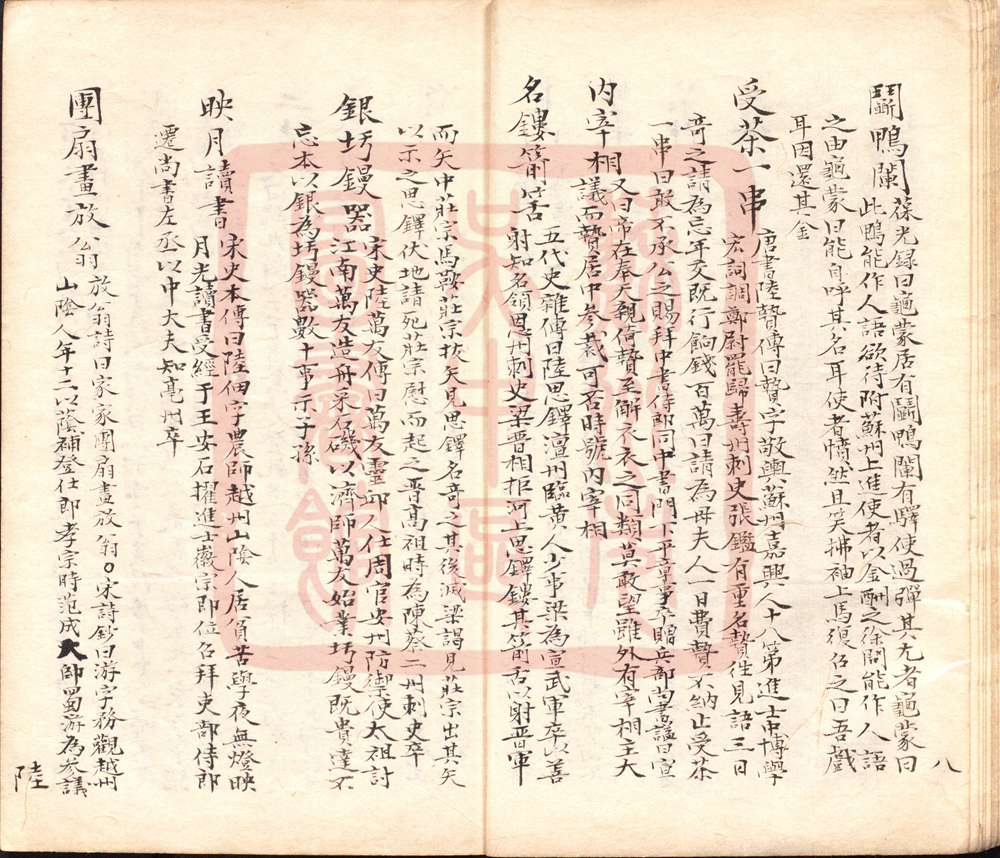 鬬鴨闌 葆光錄曰龜蒙居有鬬鴨闌有驛使過彈其尤者龜蒙曰
此鴨能作人語欲待附蘇州上進使者以金酬之徐問能作人語
之由龜蒙曰能自呼其名耳使者憤然且笑拂袖上馬復召之曰吾戲
耳因還其金
受茶一串 唐書陸贄傳曰贄字敬輿蘇州嘉興人十八第進士中博學
宏詞調鄭尉罷歸壽州刺史張鑑有重名贄往見語三日
奇之請為忘年交既行餉錢百萬曰請為母夫人一日費贄不納止受茶
一串曰敢不承公之賜拜中書侍郎同中書門下平章事卒贈兵部尚書謚曰宣
內宰相 又曰帝在奉天親倚贄至解衣衣之同類莫敢望雖外有宰相主大
議而贄居中參裁可否時號內宰相
名鏤箭筈 五代史雜傳曰陸思鐸澶州臨黃人少事梁為宣武軍卒以善
射知名領恩州刺史梁晉相拒河上思鐸鏤其箭筈以射晉軍
而矢中莊宗馬鞍莊宗拔矢見思鐸名奇之其後滅梁謁見莊宗出其矢
以示之思鐸伏地請死莊宗慰而起之晉高祖時為陳蔡二州刺史卒
銀圬鏝器 宋史陸萬友傳曰萬友靈邱人仕周官安州防禦使太祖討
江南萬友造舟采石磯以濟師萬友始業圬鏝既貴達不
忘本以銀為圬鏝器數十事示子孫
映月讀書 宋史本傳曰陸佃字農師越州山陰人居貧苦學夜無燈映
月光讀書受經于王安石擢進士徽宗即位召拜吏部侍郎
遷尚書左丞以中大夫知亳州卒
團扇畫放翁 放翁詩曰家家團扇畫放翁○宋詩鈔曰游字務觀越州
山陰人年十二以蔭補登仕郎孝宗時范成大帥蜀游為參議
八
陸